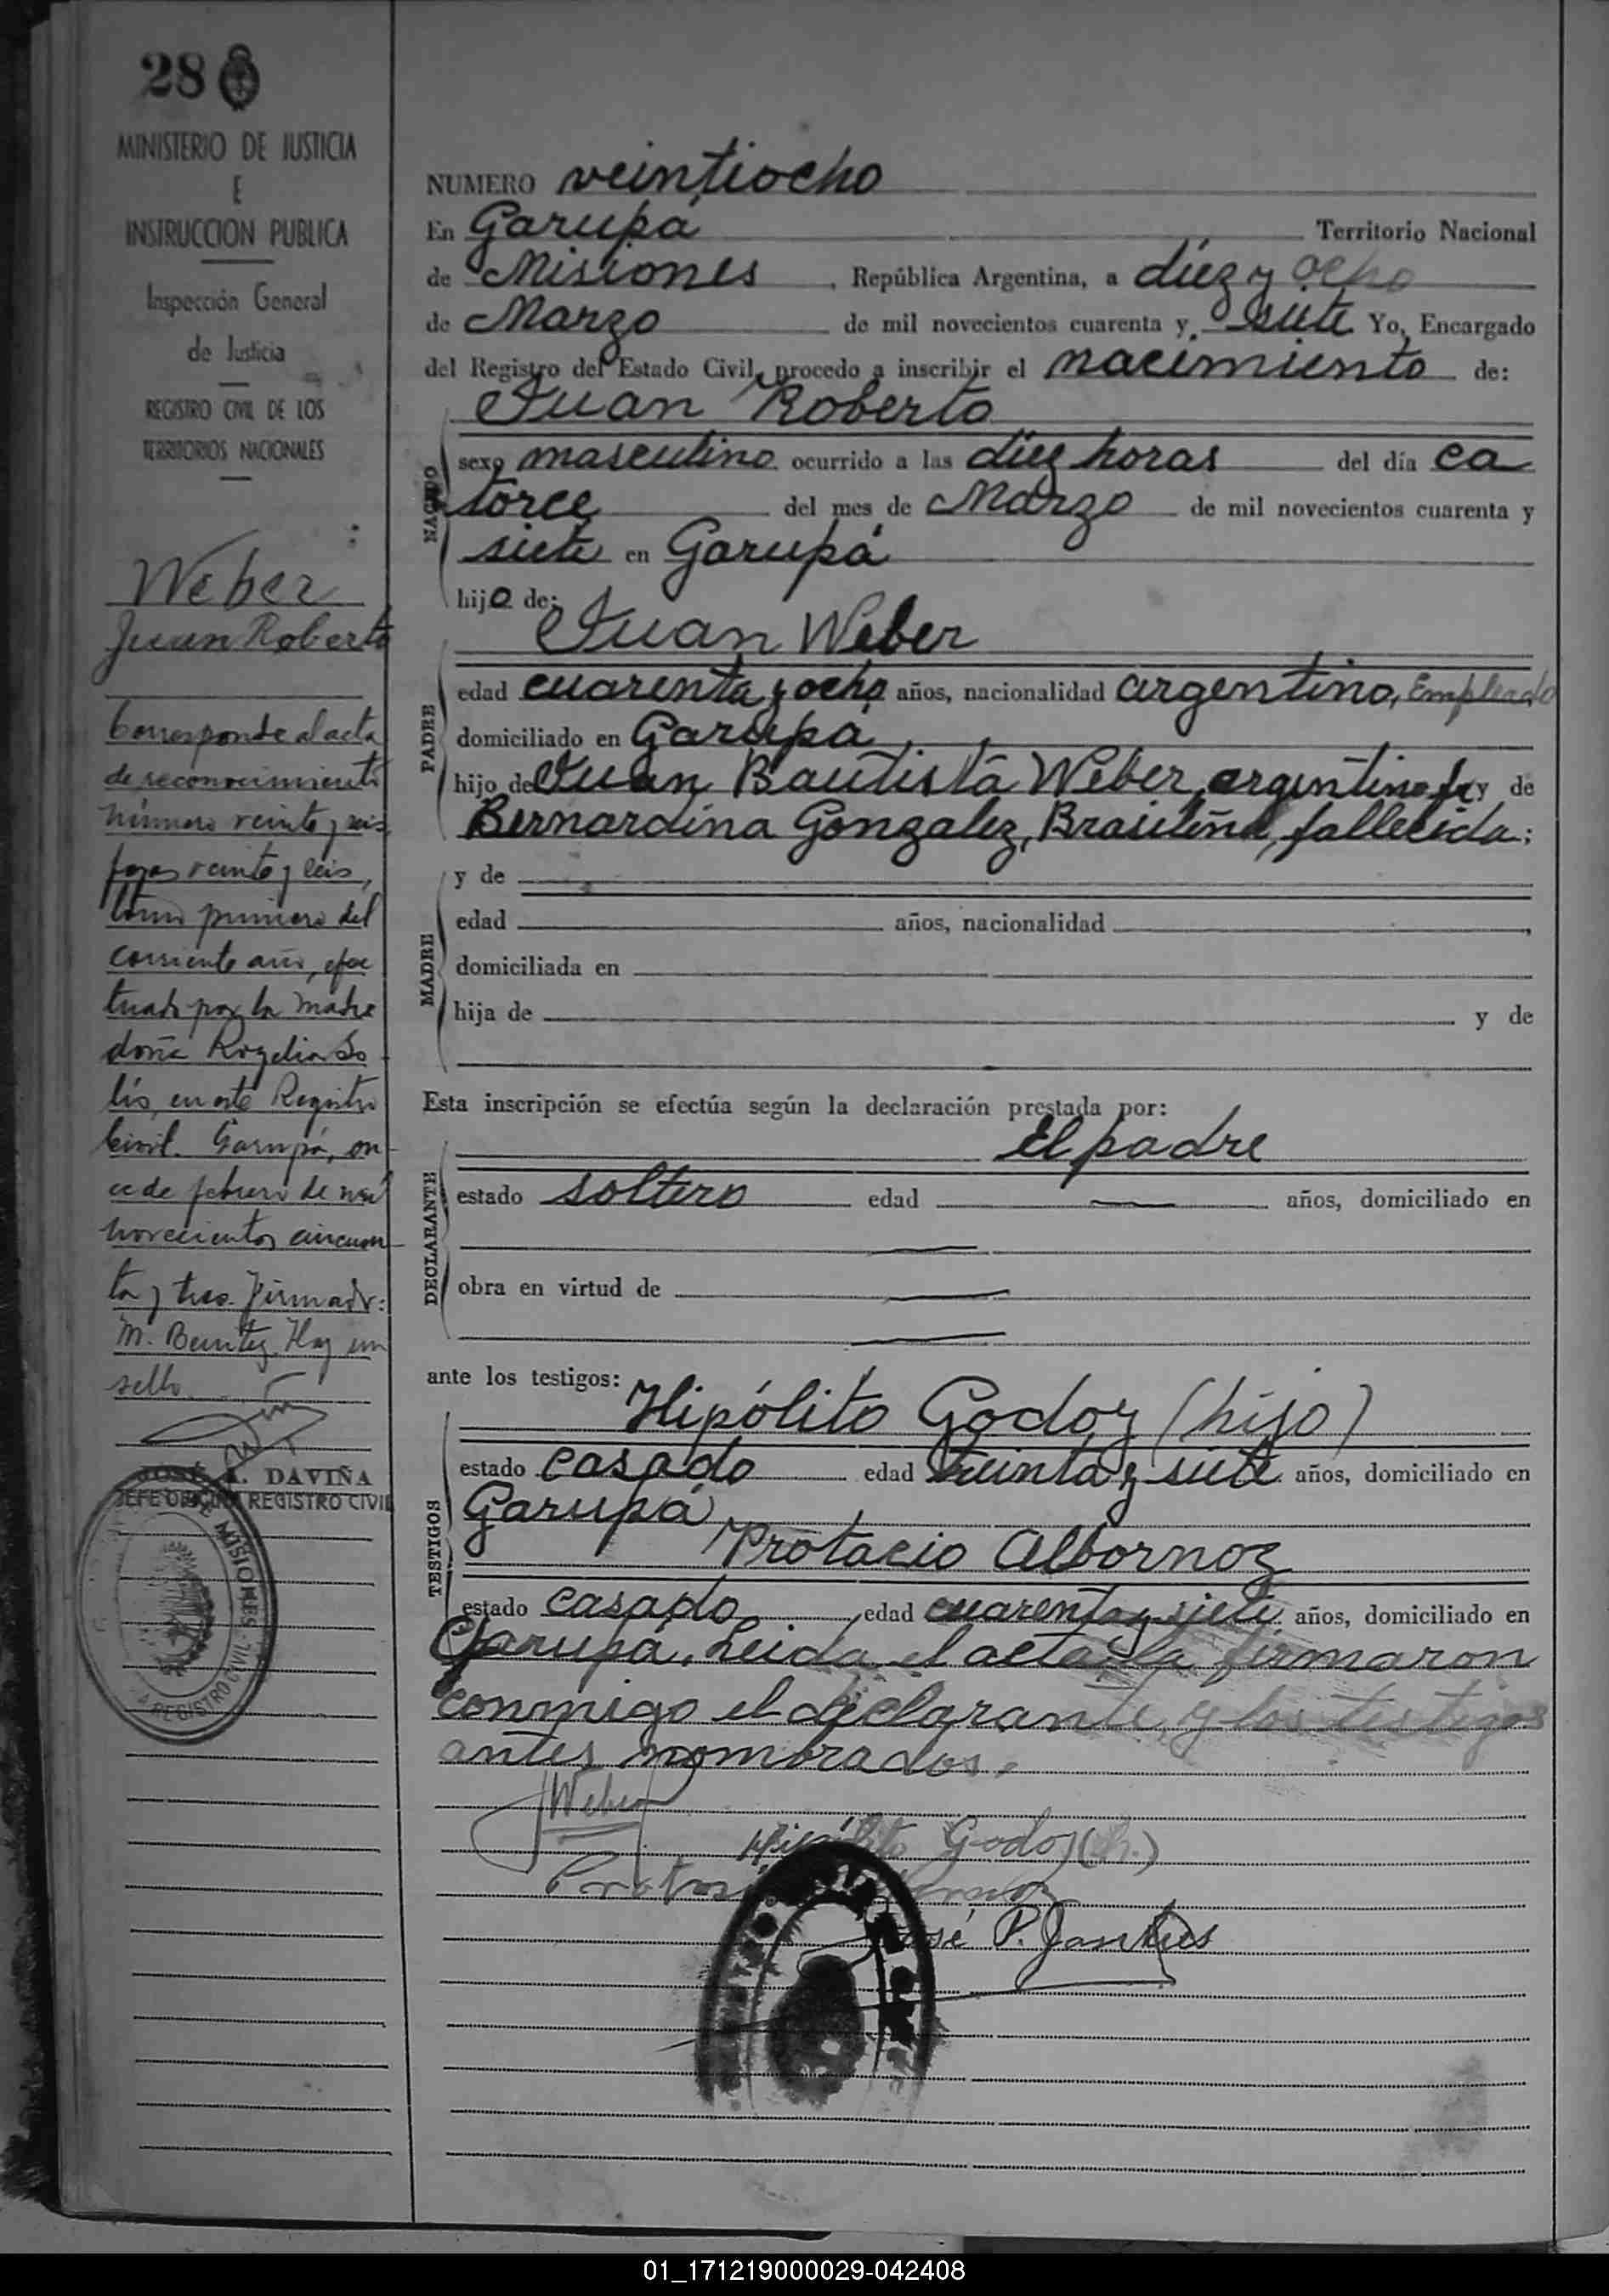 28
MINISTERIO DE JUSTICIA
E
INSTRUCCION PUBLICA
Inspección General
de Justicia
REGISTRO CIVIL DE LOS
TERRITORIOS NACIONALES
Weber
Juan Roberto
Corresponde al acta
de reconocimiento
número veinte y seis,
fojas veinte y seis,
tomo primero del
corriente año, efec
tuado por la madre
doña Rogelia So
lis, en este Registro
Civil. Garupá, on-
ce de febrero de mil
novecientos cincuen-
ta y tres. Firmado:
M. Benitez. Hay un
sello.
JOSÉ A. DAVIÑA
JEFE OFICINA REGISTRO CIVIL
DE MISIONES
REGISTRO CIVIL
NUMERO veintiocho
En Garupá Territorio Nacional
de Misiones, República Argentina, a diez y ocho
de Marzo de mil novecientos cuarenta y siete Yo, Encargado
del Registro del Estado Civil, procedo a inscribir el nacimiento de:
Juan Roberto
NACIDO
sexo masculino ocurrido a las diez horas del día ca
torce del mes de Marzo de mil novecientos cuarenta y
siete en Garupá
hijo de:
Juan Weber
PADRE
edad cuarenta y ocho años, nacionalidad argentino, Empleado
domiciliado en Garupá
hijo de Juan Bautista Weber, argentino, y de
Bernardina Gonzalez, Brasileña, fallecida;
MADRE
y de
edad años, nacionalidad ,
domiciliada en
hija de y de
Esta inscripción se efectúa según la declaración prestada por:
El padre
DECLARANTE
estado soltero edad — años, domiciliado en
—
obra en virtud de —
—
ante los testigos:
Hipólito Godoy (hijo)
TESTIGOS
estado casado edad treinta y siete años, domiciliado en
Garupá
Protacio Albornoz
estado casado edad cuarenta y siete años, domiciliado en
Garupá. Leida el acta la firmaron
conmigo el declarante y los testigos
antes nombrados.
JWeber
Hipólito Godoy (h.)
José P.
01_171219000029-042408